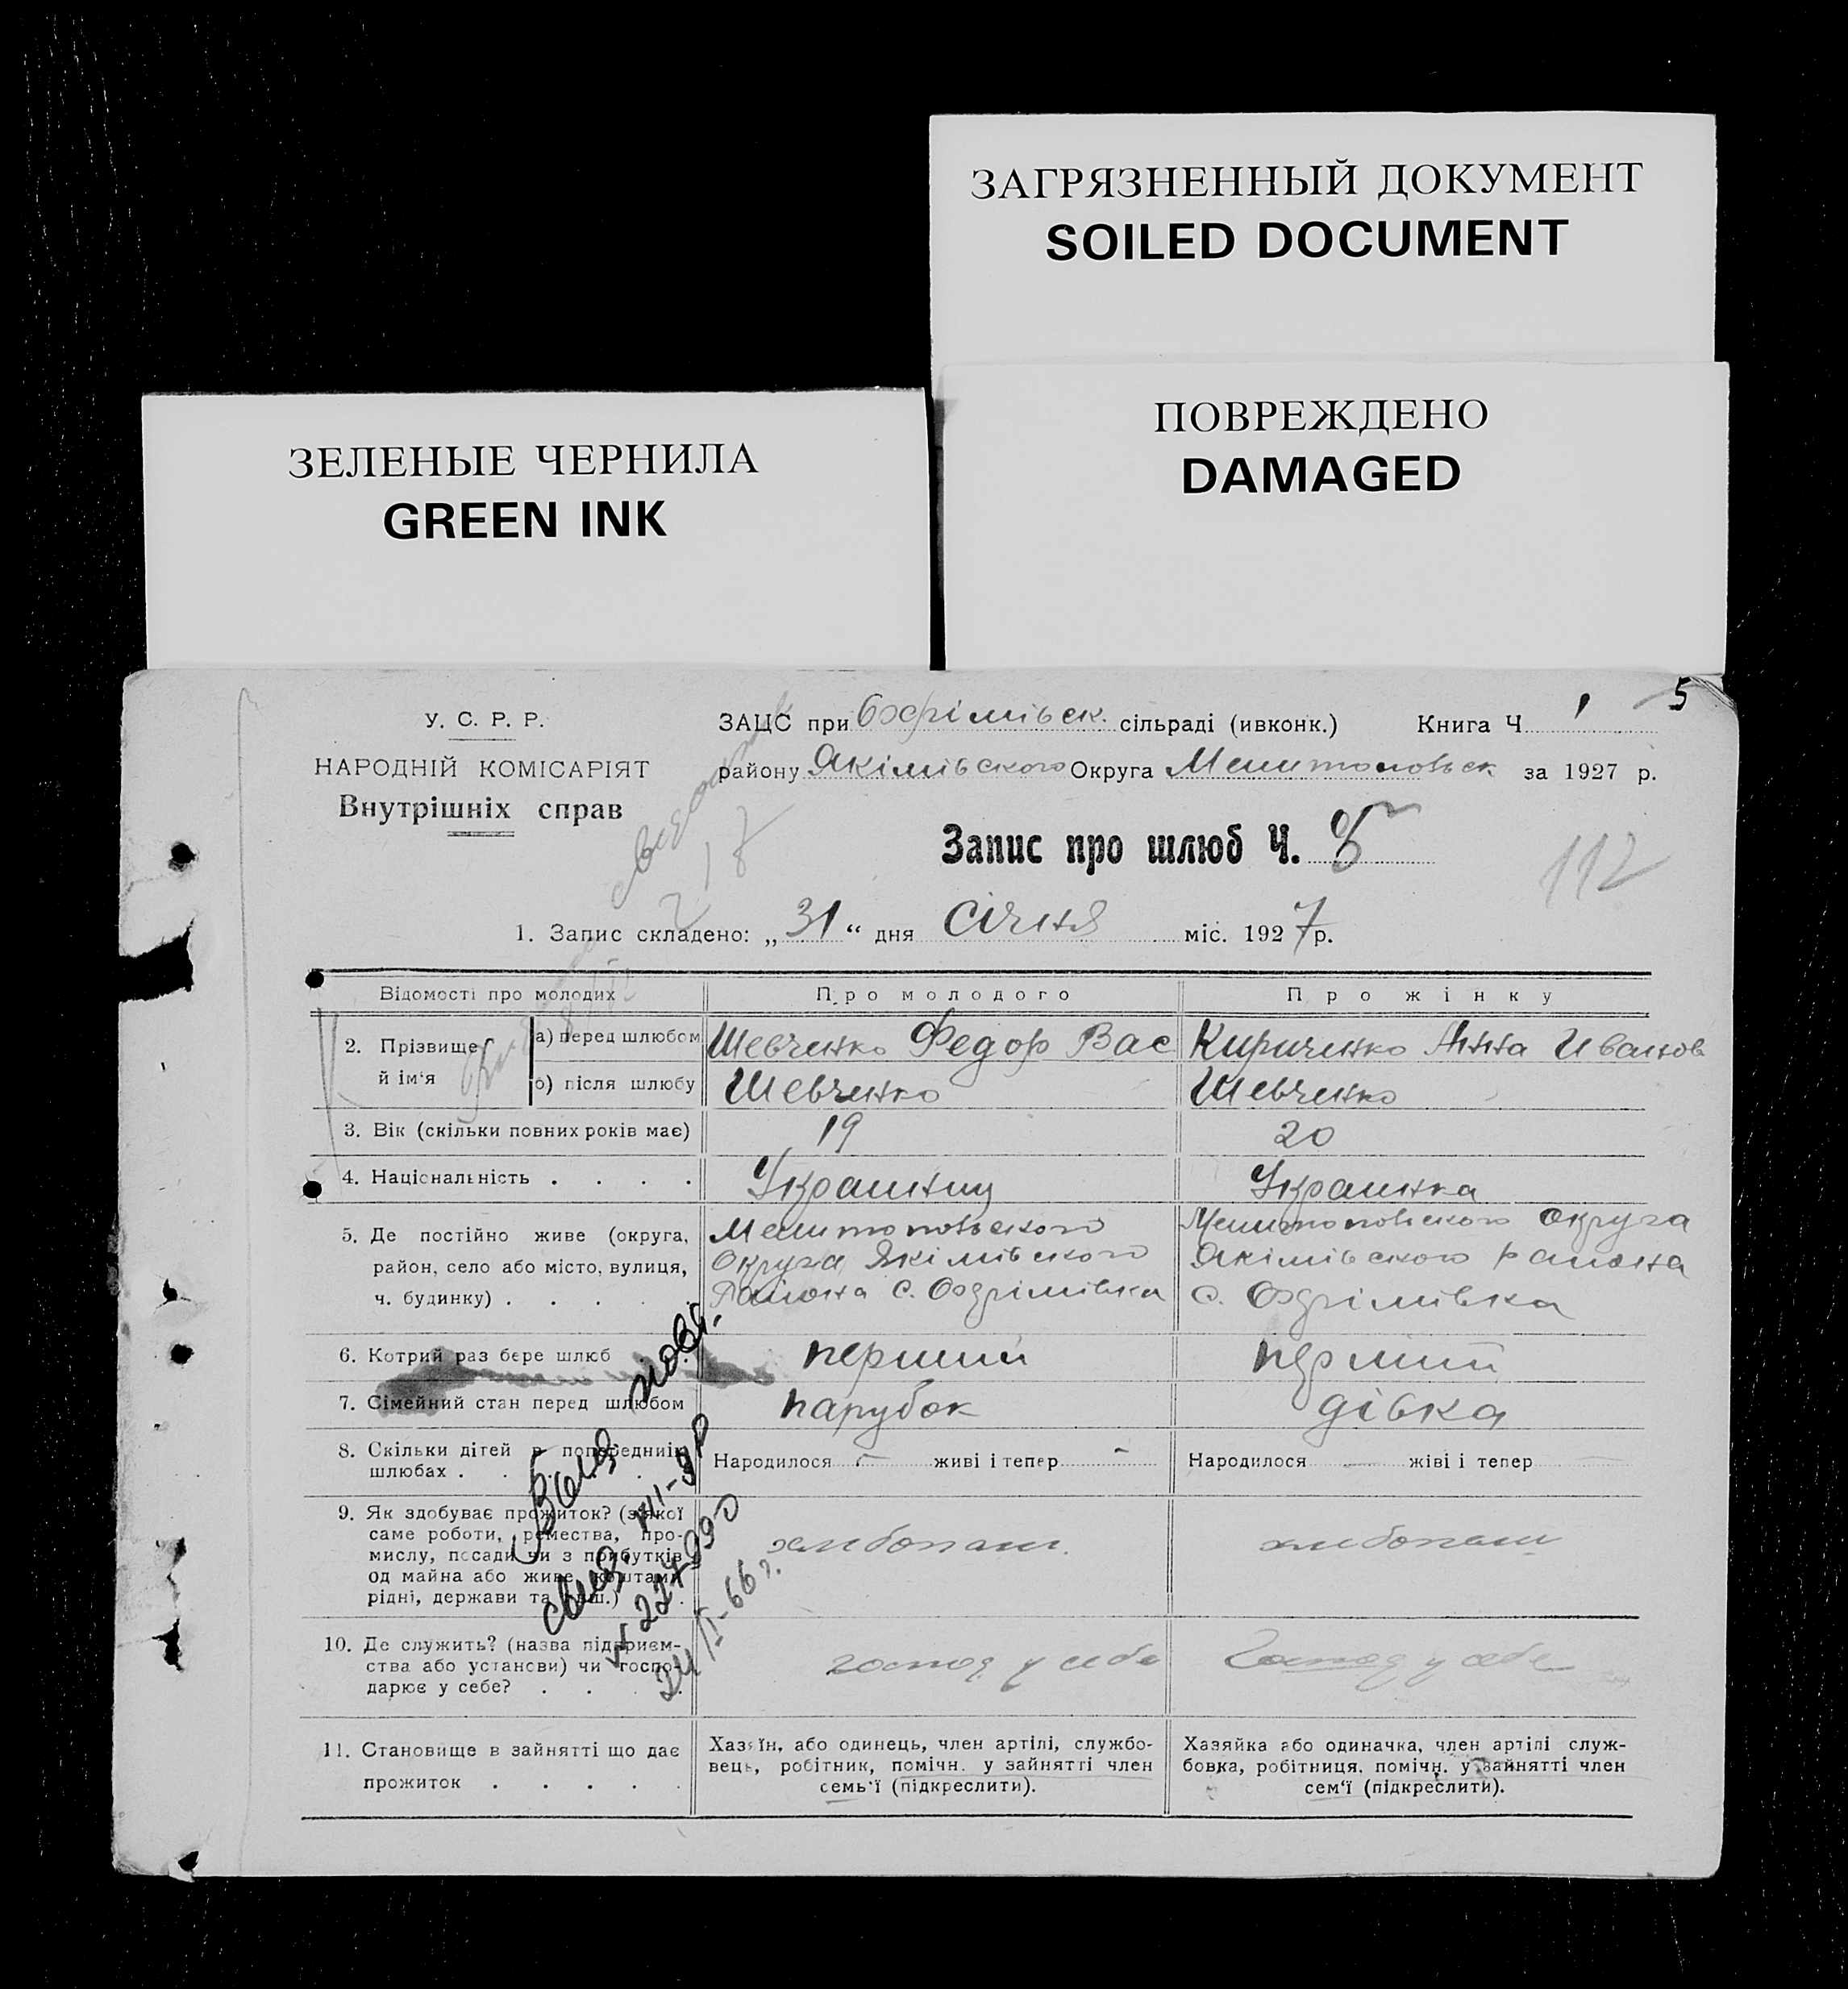 ЗАГРЯЗНЕННЫЙ ДОКУМЕНТ
SOILED DOCUMENT
ПОВРЕЖДЕНО
DAMAGED
ЗЕЛЕНЫЕ ЧЕРНИЛА
GREEN INK
5
У. С. Р. Р.
НАРОДНІЙ КОМІСАРІЯТ
Внутрішніх справ
ЗАЦС при Охрімівськ. сільраді (ивконк.) Книга Ч 1
району Якімівского Округа Мелитопольск за 1927 р.
Запис про шлюб Ч. 5
112
1. Запис складено: „31“ дня Січня міс. 1927 р.
Відомості про молодих Про молодого Про жінку
2. Прізвище й ім‘я
а) перед шлюбом Шевченко Федор Вас Кириченко Анна Иванов
б) після шлюбу Шевченко Шевченко
3. Вік (скільки повних років має) 19 20
4. Національність . . . . Украинец Украинка
5. Де постійно живе (округа, Мелитопольского Мелитопольского Округа
район, село або місто, вулиця, Округа Якімівского Якімівского района
ч. будинку) . . . . Района с. Охрімівка с. Охрімівка
6. Котрий раз бере шлюб перший перший
7. Сімейний стан перед шлюбом парубок дівка
8. Скільки дітей в попередніх
шлюбах . . . . Народилося — живі і тепер — Народилося — жіві і тепер
9. Як здобуває прожиток? (з якої
саме роботи, ремества, про-
мислу, посади чи з прибутків хлибопаш. хлибопаш
од майна або живе коштами
рідні, держави та інш.)
10. Де служить? (назва підприєм-
ства або установи) чи госпо- господ у себе Господ у себе
дарює у себе? . . . .
11. Становище в зайнятті що дає
прожиток . . . . .
Хазяїн, або одинець, член артілі, службо-
вець, робітник, помічн. у зайнятті член
семь‘ї (підкреслити).
Хазяйка або одиначка, член артілі служ-
бовка, робітниця, помічн. у зайнятті член
сем‘ї (підкреслити).
24/II-66 г.